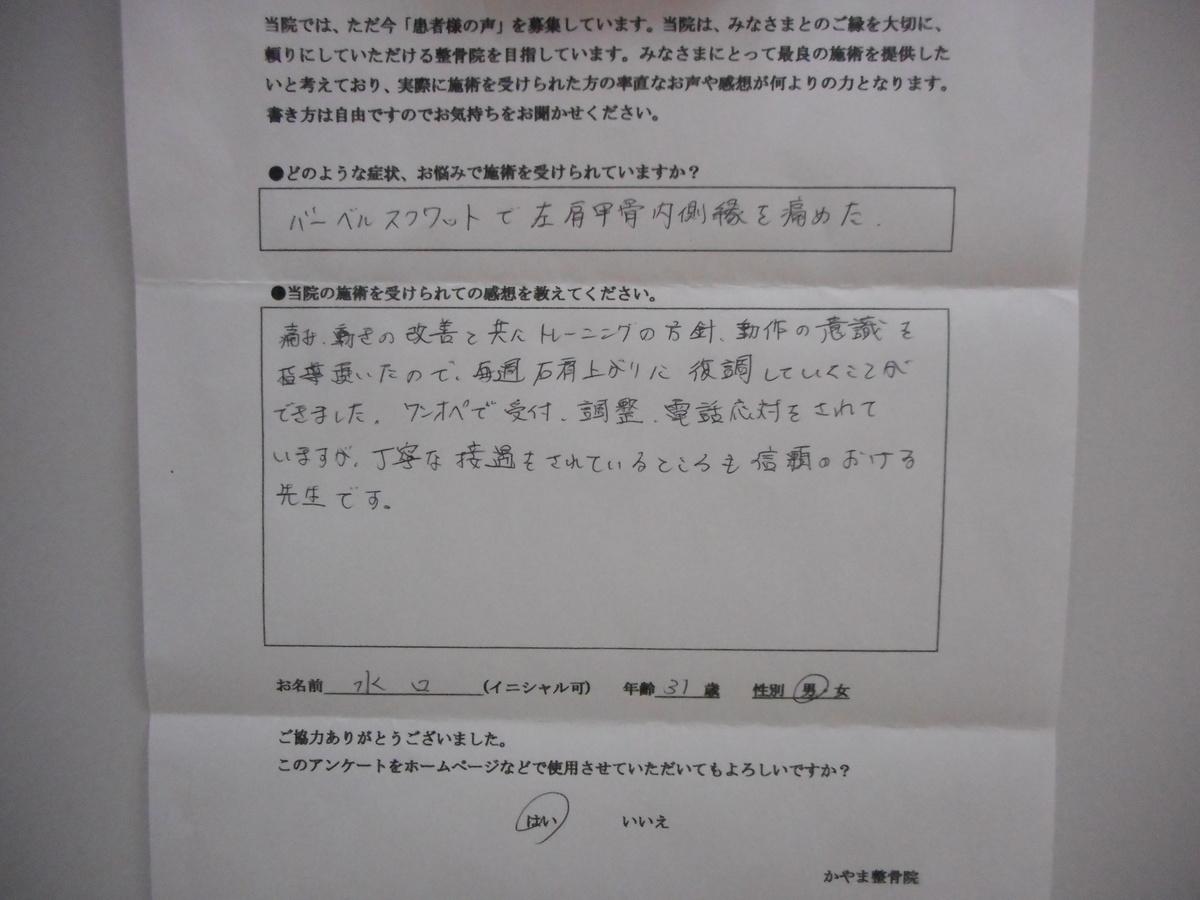 当院では、ただ今「患者様の声」を募集しています。当院は、みなさまとのご縁を大切に、
頼りにしていただける整骨院を目指しています。みなさまにとって最良の施術を提供した
いと考えており、実際に施術を受けられた方の率直なお声や感想が何よりの力となります。
書き方は自由ですのでお気持ちをお聞かせください。
●どのような症状、お悩みで施術を受けられていますか？
バーベルスクワットで左肩甲骨内側縁を痛めた.
●当院の施術を受けられての感想を教えてください。
痛み、動きの改善と共にトレーニングの方針、動作の意識を
指導頂いたので、毎週右肩上がりに復調していくことが
できました。ワンオペで受付、調整、電話応対をされて
いますが、丁寧な接遇をされているところも信頼のおける
先生です。
お名前 水口 (イニシャル可) 年齢 31 歳 性別 男・女
ご協力ありがとうございました。
このアンケートをホームページなどで使用させていただいてもよろしいですか？
はい いいえ
かやま整骨院